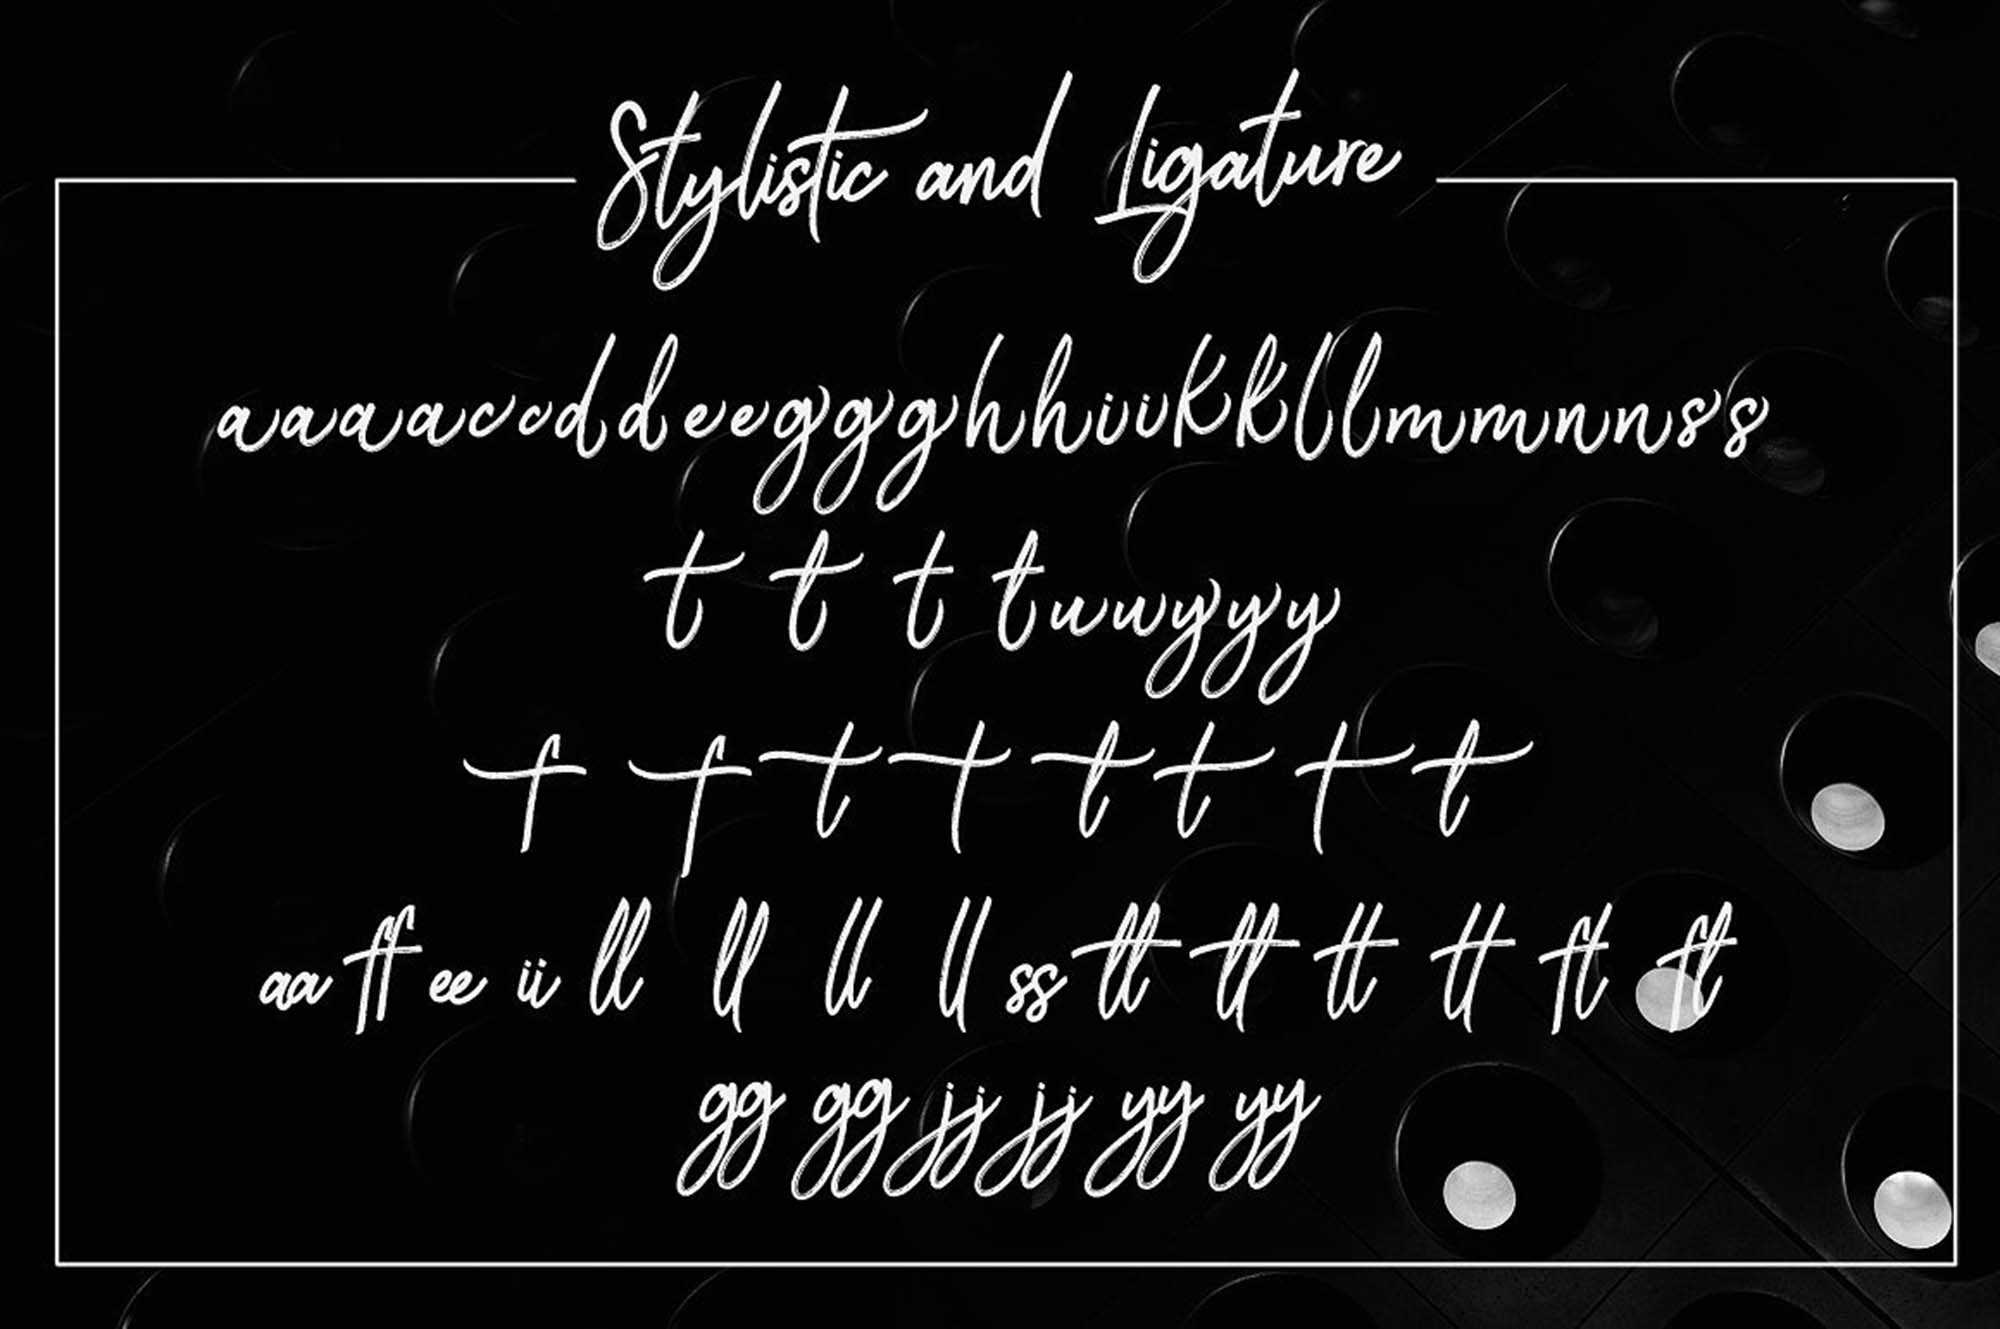 Stylistic and Ligature
aaaaccddeeggghhiikkllmmnnss
t t t tuuyyy
f f t t t t t t
aa ff ee ii ll ll ll ll ss tt tt tt tt ft ft
gg gg jj jj yy yy